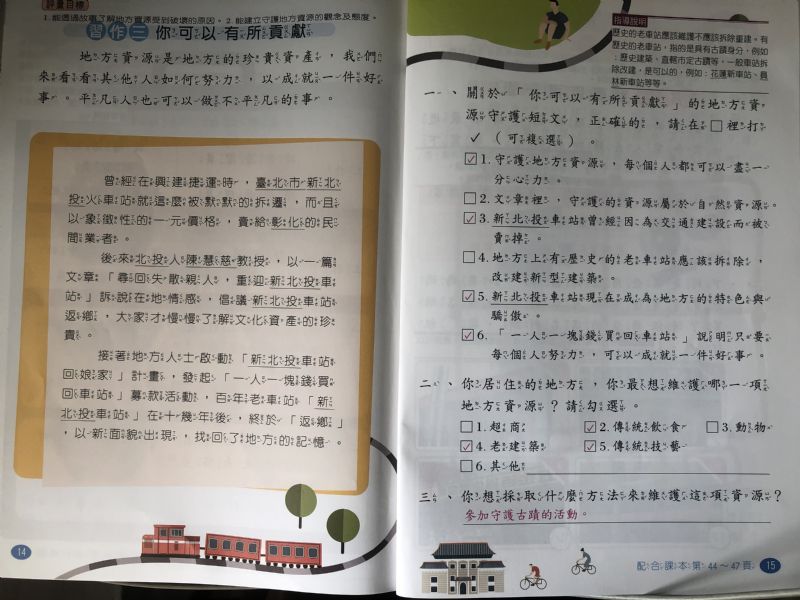 評量目標
1. 能透過故事了解地方資源受到破壞的原因。2. 能建立守護地方資源的觀念及態度。
習作三 你可以有所貢獻
地方資源是地方的珍貴資產，我們
來看看其他人如何努力，以成就一件好
事。平凡人也可以做不平凡的事。
曾經在興建捷運時，臺北市新北
投火車站就這麼被默默的拆遷，而且
以象徵性的一元價格，賣給彰化的民
間業者。
後來北投人陳慧慈教授，以一篇
文章「尋回失散親人，重迎新北投車
站」訴說在地情感，倡議新北投車站
返鄉，大家才慢慢了解文化資產的珍
貴。
接著地方人士啟動「新北投車站
回娘家」計畫，發起「一人一塊錢買
回車站」募款活動，百年老車站「新
北投車站」在十幾年後，終於「返鄉」
，以新面貌出現，找回了地方的記憶。
14
指導說明
歷史的老車站應該維護不應該拆除重建。有
歷史的老車站，指的是具有古蹟身分，例如
：歷史建築、直轄市定古蹟等，一般車站拆
除改建，是可以的，例如：花蓮新車站、員
林新車站等等。
一、關於「你可以有所貢獻」的地方資
源守護短文，正確的，請在□裡打
✓（可複選）。
☑1. 守護地方資源，每個人都可以盡一
分心力。
□2. 文章裡，守護的資源屬於自然資源。
☑3. 新北投車站曾經因為交通建設而被
賣掉。
□4. 地方上有歷史的老車站應該拆除，
改建新型建築。
☑5. 新北投車站現在成為地方的特色與
驕傲。
☑6. 「一人一塊錢買回車站」說明只要
每個人努力，可以成就一件好事。
二、你居住的地方，你最想維護哪一項
地方資源？請勾選。
□1. 超商 ☑2. 傳統飲食 □3. 動物
☑4. 老建築 ☑5. 傳統技藝
□6. 其他
三、你想採取什麼方法來維護這項資源？
參加守護古蹟的活動。
配合課本第 44～47 頁 15